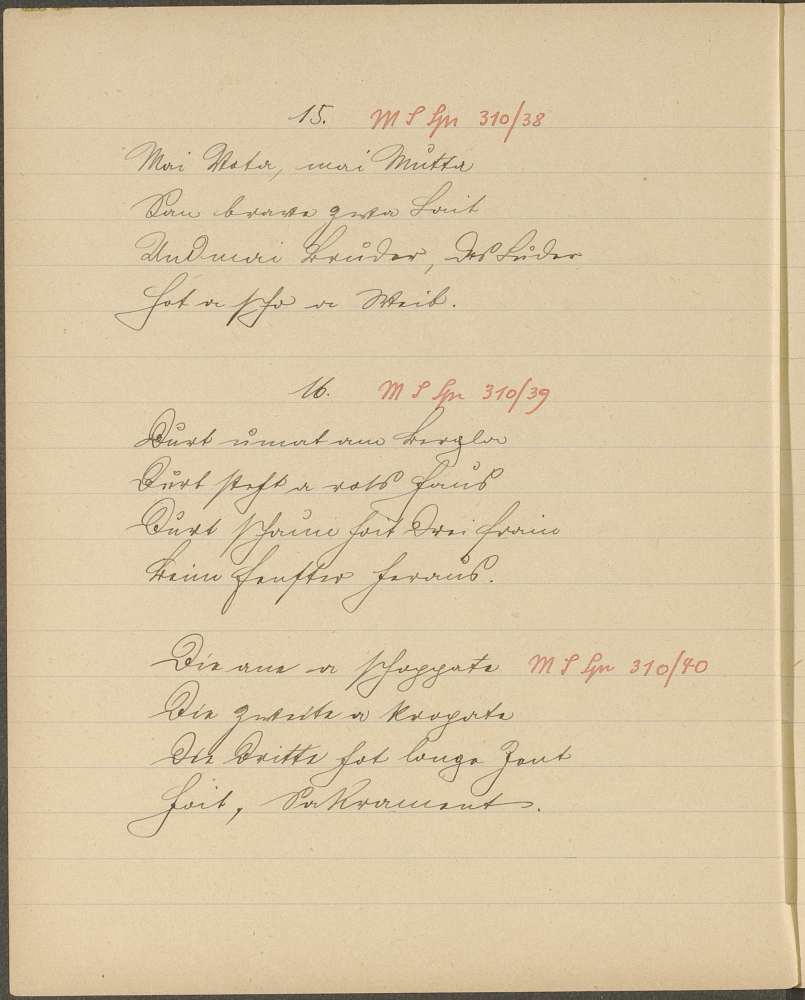 15. M S Sp 310/38
Mai Vota, mai Mutta
San brave zwa Leit
Und mai Bruder, des Luder
Hot a scho a Weib.
16. M S Sp 310/39
Durt umat am Bergla
Durt steht a rots Haus
Durt schaun heit drei Frain
Beim Fenster heraus.
Die ane a schoppate M S Sp 310/40
Die zweite a kropate
Die dritte hot longe Zent
Heit, Sakrament.